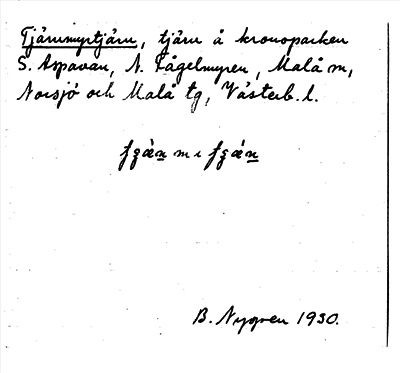 Tjärnmyrtjärn, tjärn å kronoparken
S. Aspavan, N. Fågelmyren, Malå m,
Norsjö och Malå tg, Västerb. l.
B. Nygren 1930.